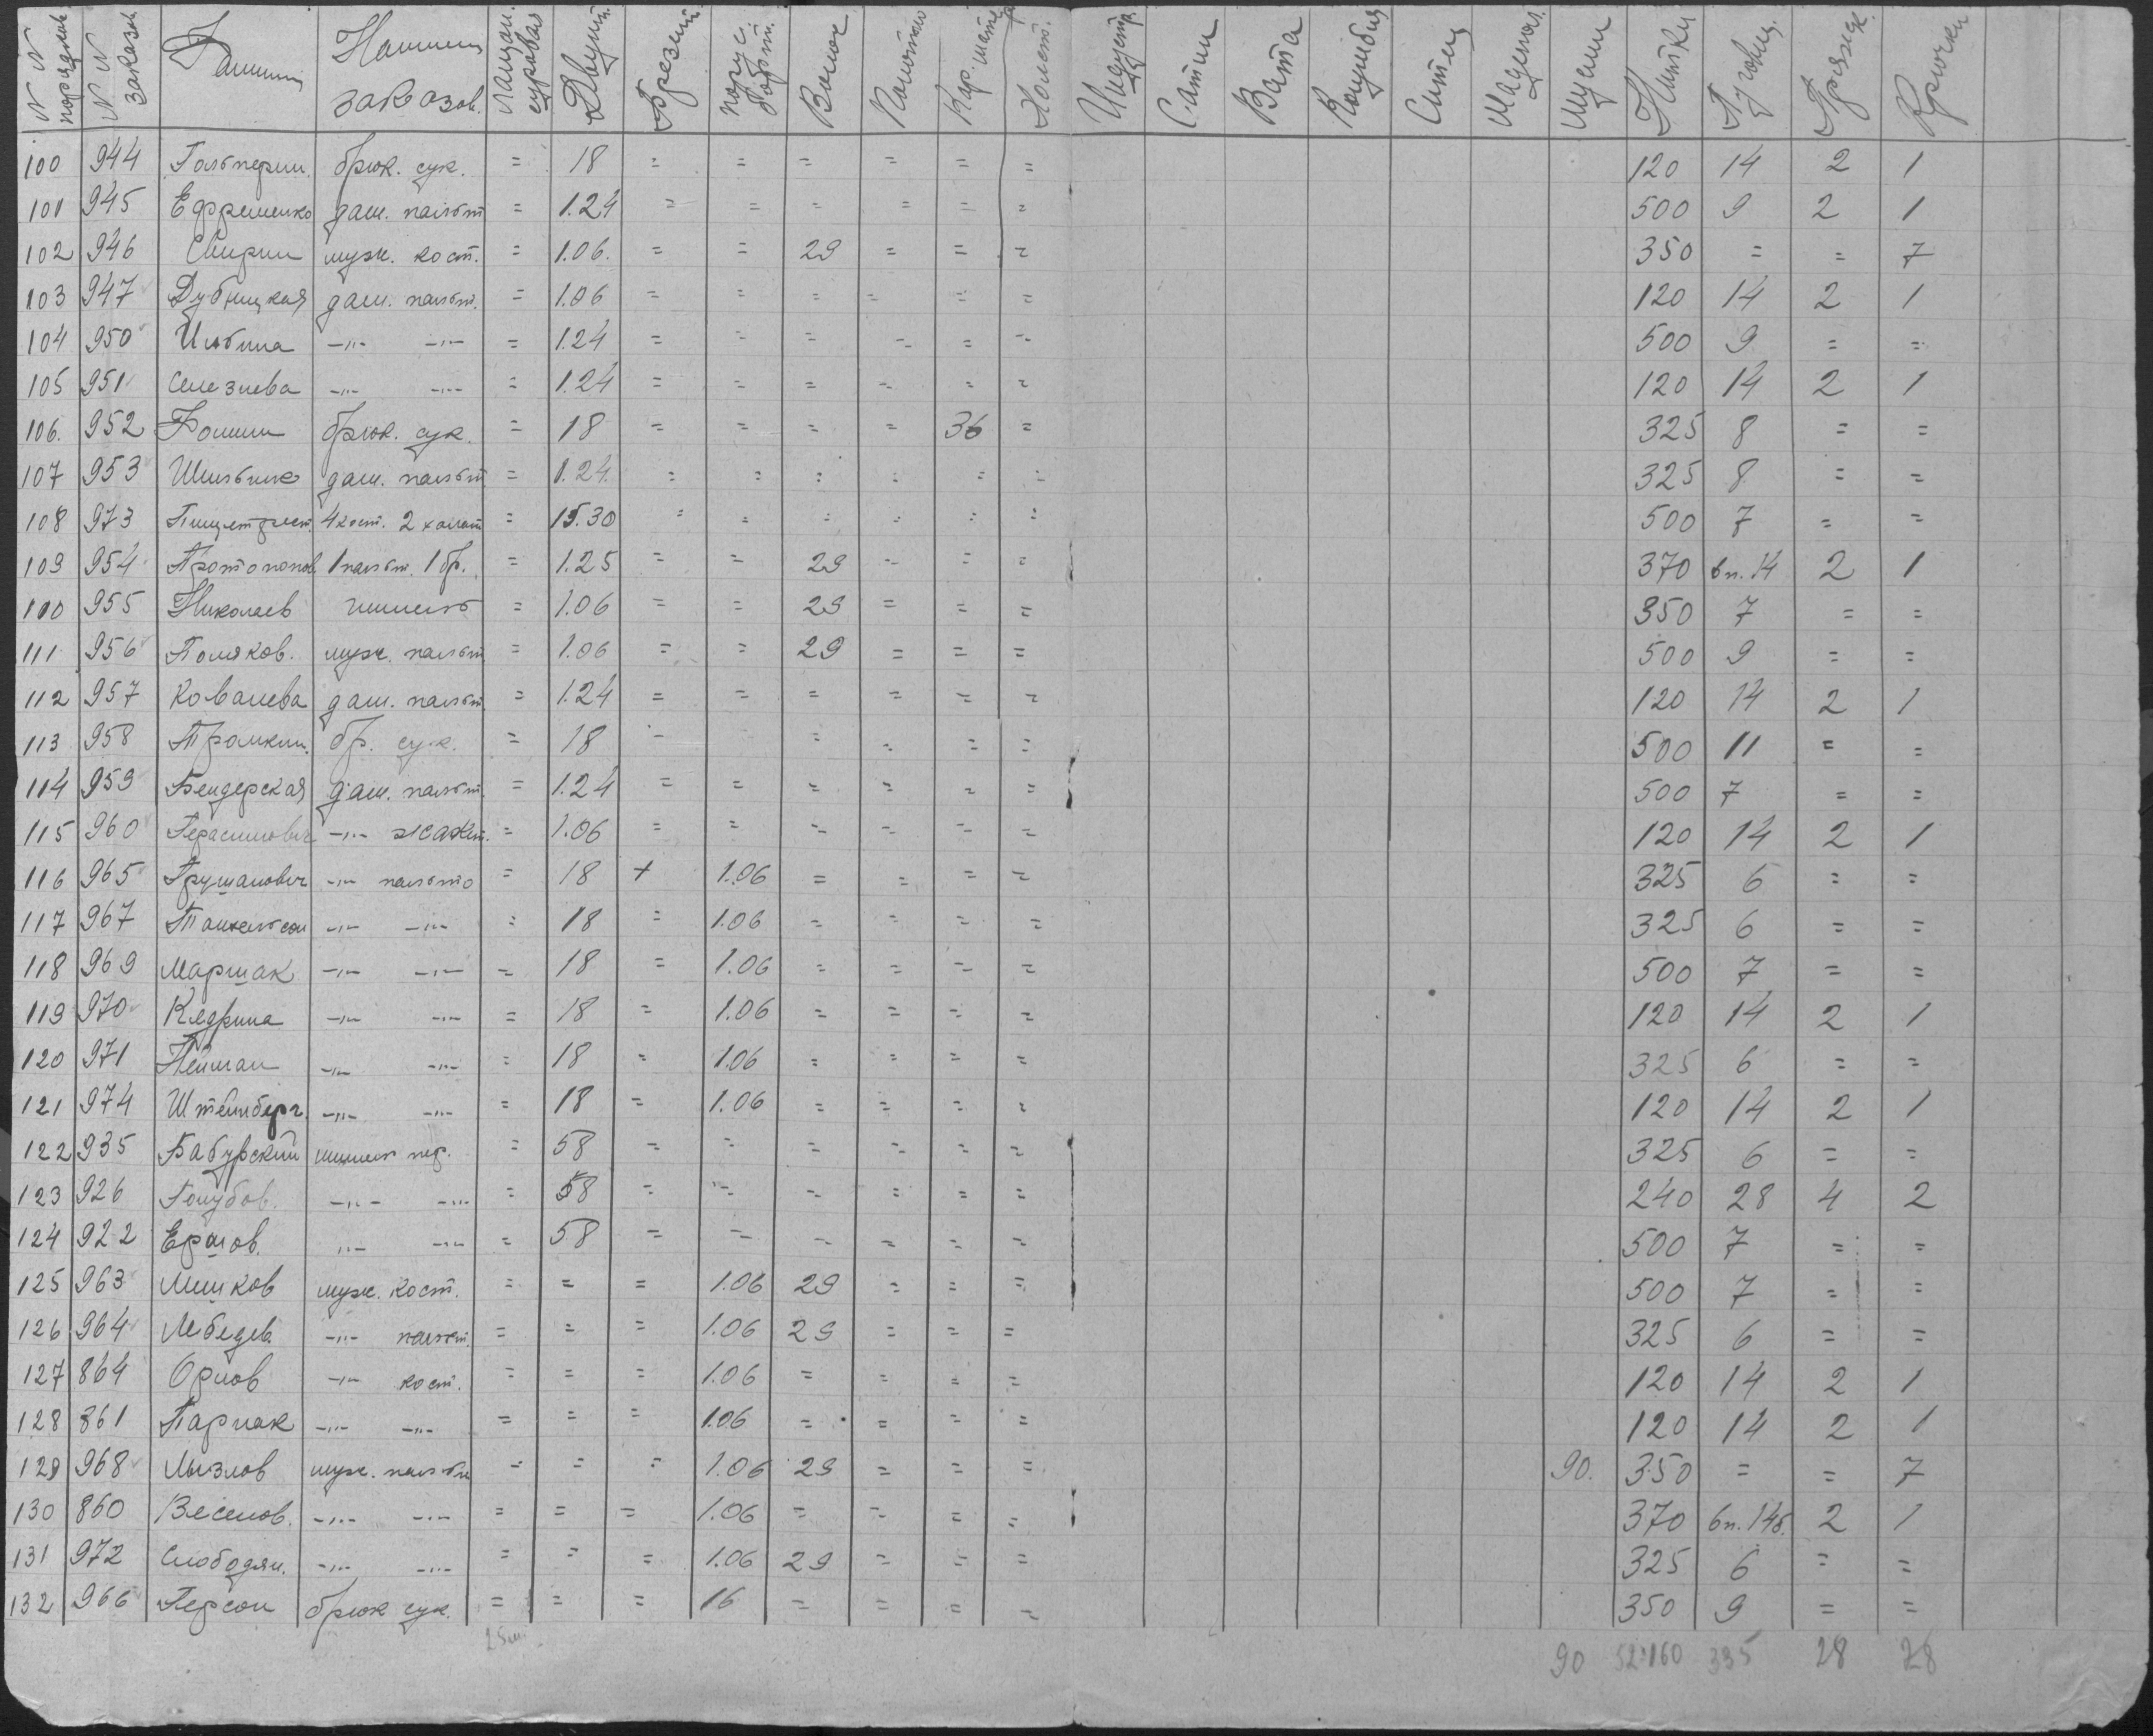 N N порядков. N N заказов Фамилии Наимен. заказов. суровая Двунит. Брезент. Ватин Кар. Холст. Сатин Вата Коломбия Ситец Мадепол. Нитки Пуговиц. Пряжек. Крючки
100 944 Гольперин. брюк. сук. = 18 = = = = = = 120 14 2 1
101 945 Ефременко дам. пальт = 1.24 = = = = = = 500 9 2 1
102 946 Свирин муж. кост. = 1.06. = = 29 = = = 350 = = 7
103 947 Дубницкая дам. пальт. = 1.06 = = = = = = 120 14 2 1
104 950 -"- -"- = 1.24 = = = = = = 500 9 = =
105 951 Селезнева -"- -"- = 1.24 = = = = = = 120 14 2 1
106. 952 Фомин брюк. сук. = 18 = = = = 36 = 325 8 = =
107 953 дам. пальт = 1.24. = = = = = = 325 8 = =
108 973 Пищетрест. 4 кост. 2 халат = 15.30 = = = = = = 500 7 = =
109 954 Протопопов. 1 пальт. 1 бр. = 1.25 = = 29 = = = 370 6п. 14 2 1
110 955 Николаев шинель = 1.06 = = 29 = = = 350 7 = =
111 956 Поляков. муж. пальт = 1.06 = = 29 = = = 500 9 = =
112 957 Ковалева дам. пальт. = 1.24 = = = = = = 120 14 2 1
113 958 бр. сук. = 18 = = = = = 500 11 = =
114 959 Бендерская дам. пальт. = 1.24 = = = = = = 500 7 = =
115 960 Герасимович -"- жакет. = 1.06 = = = = = = 120 14 2 1
116 965 Грушанович -"- пальто = 18 + 1.06 = = = = 325 6 = =
117 967 -"- -"- = 18 = 1.06 = = = = 325 6 = =
118 969 Маршак -"- -"- = 18 = 1.06 = = = = 500 7 = =
119 970 Кедрина -"- -"- = 18 = 1.06 = = = = 120 14 2 1
120 971 Нейман -"- -"- = 18 = 1.06 = = = = 325 6 = =
121 974 Штейнберг. -"- -"- = 18 = 1.06 = = = = 120 14 2 1
122 935 Бабурский шинель пер. = 58 = = = = = = 325 6 = =
123 926 Голубов. -"- -"- = 58 = = = = = = 240 28 4 2
124 922 Ершов. -"- -"- = 58 = = = = = = 500 7 = =
125 963 Мишков муж. кост. = = = 1.06 29 = = = 500 7 = =
126 964 Лебедев. -"- пальт. = = = 1.06 29 = = = 325 6 = =
127 864 Орлов -"- кост. = = = 1.06 = = = = 120 14 2 1
128 861 Парнак -"- -"- = = = 1.06 = = = = 120 14 2 1
129 968 Лызлов муж. пальто = = = 1.06 29 = = = 90. 350 = = 7
130 860 Веселов. -"- -"- = = = 1.06 = = = = 370 6п. 14б. 2 1
131 972 Слободян. -"- -"- = = = 1.06 29 = = = 325 6 = =
132 966 Герсон брюк сук. = = = 16 = = = = 350 9 = =
90 335 28 28